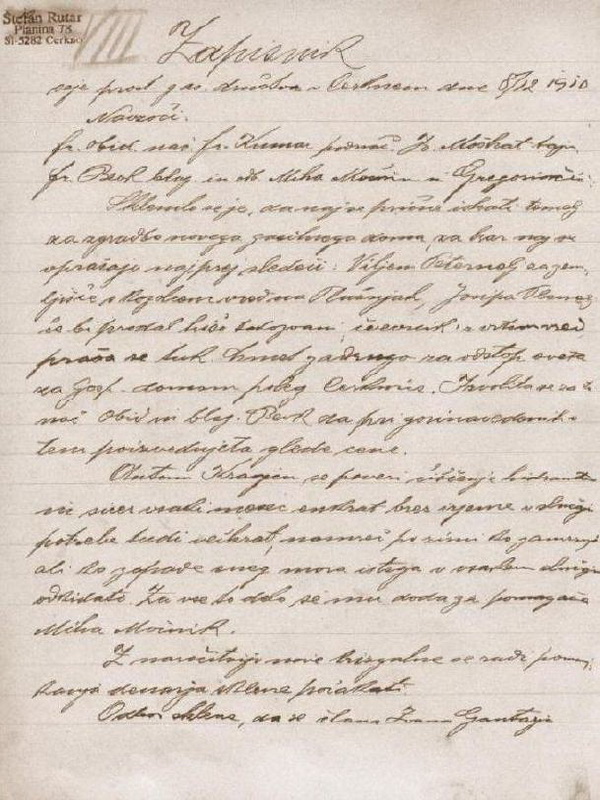 Štefan Rutar
Planina 75
SI-5282 Cerkno
VIII
Zapisnik
seje prost. gas. društva v Cerknem dne 8/12 1910
Navzoči:
fr. Obid nač. fr. Kumar podnač. Jo. Močkat
fr. Peck blag. in ob. Miha Močnik in Gregor
Sklenilo se je, da naj se prične iskati temelj
za zgradbo novega gasilnega doma, za kar naj se
vprašajo najprej sledeči: Viljem Peternelj za zem-
ljišče s Plužnjah, Josipa
če bi prodal hišo z vrtom vred
praša se tuk. kmet. zadrugo za odstop sveta
za Gosp. domom poleg Cerknice. Izvolita se za to
nač. Obid in blag. Peck da pri gorinavedenih
tem poizvedujeta glede cene.
Antonu Krajcu se poveri čiščenje hidrantov
in sicer vsaki mesec enkrat brez izjeme v slučaji
potrebe tudi večkrat, namreč po zimi ko zamrznejo
ali ko zapade sneg mora istega v vsakem slučaju
odkidati. Za vse to delo, se mu doda za pomagača
Miha Močnik.
Z naročitvijo nove brizgalne se radi poman-
kanja denarja sklene počakati.
Odbor sklene, da se člana Ivana Gantarja